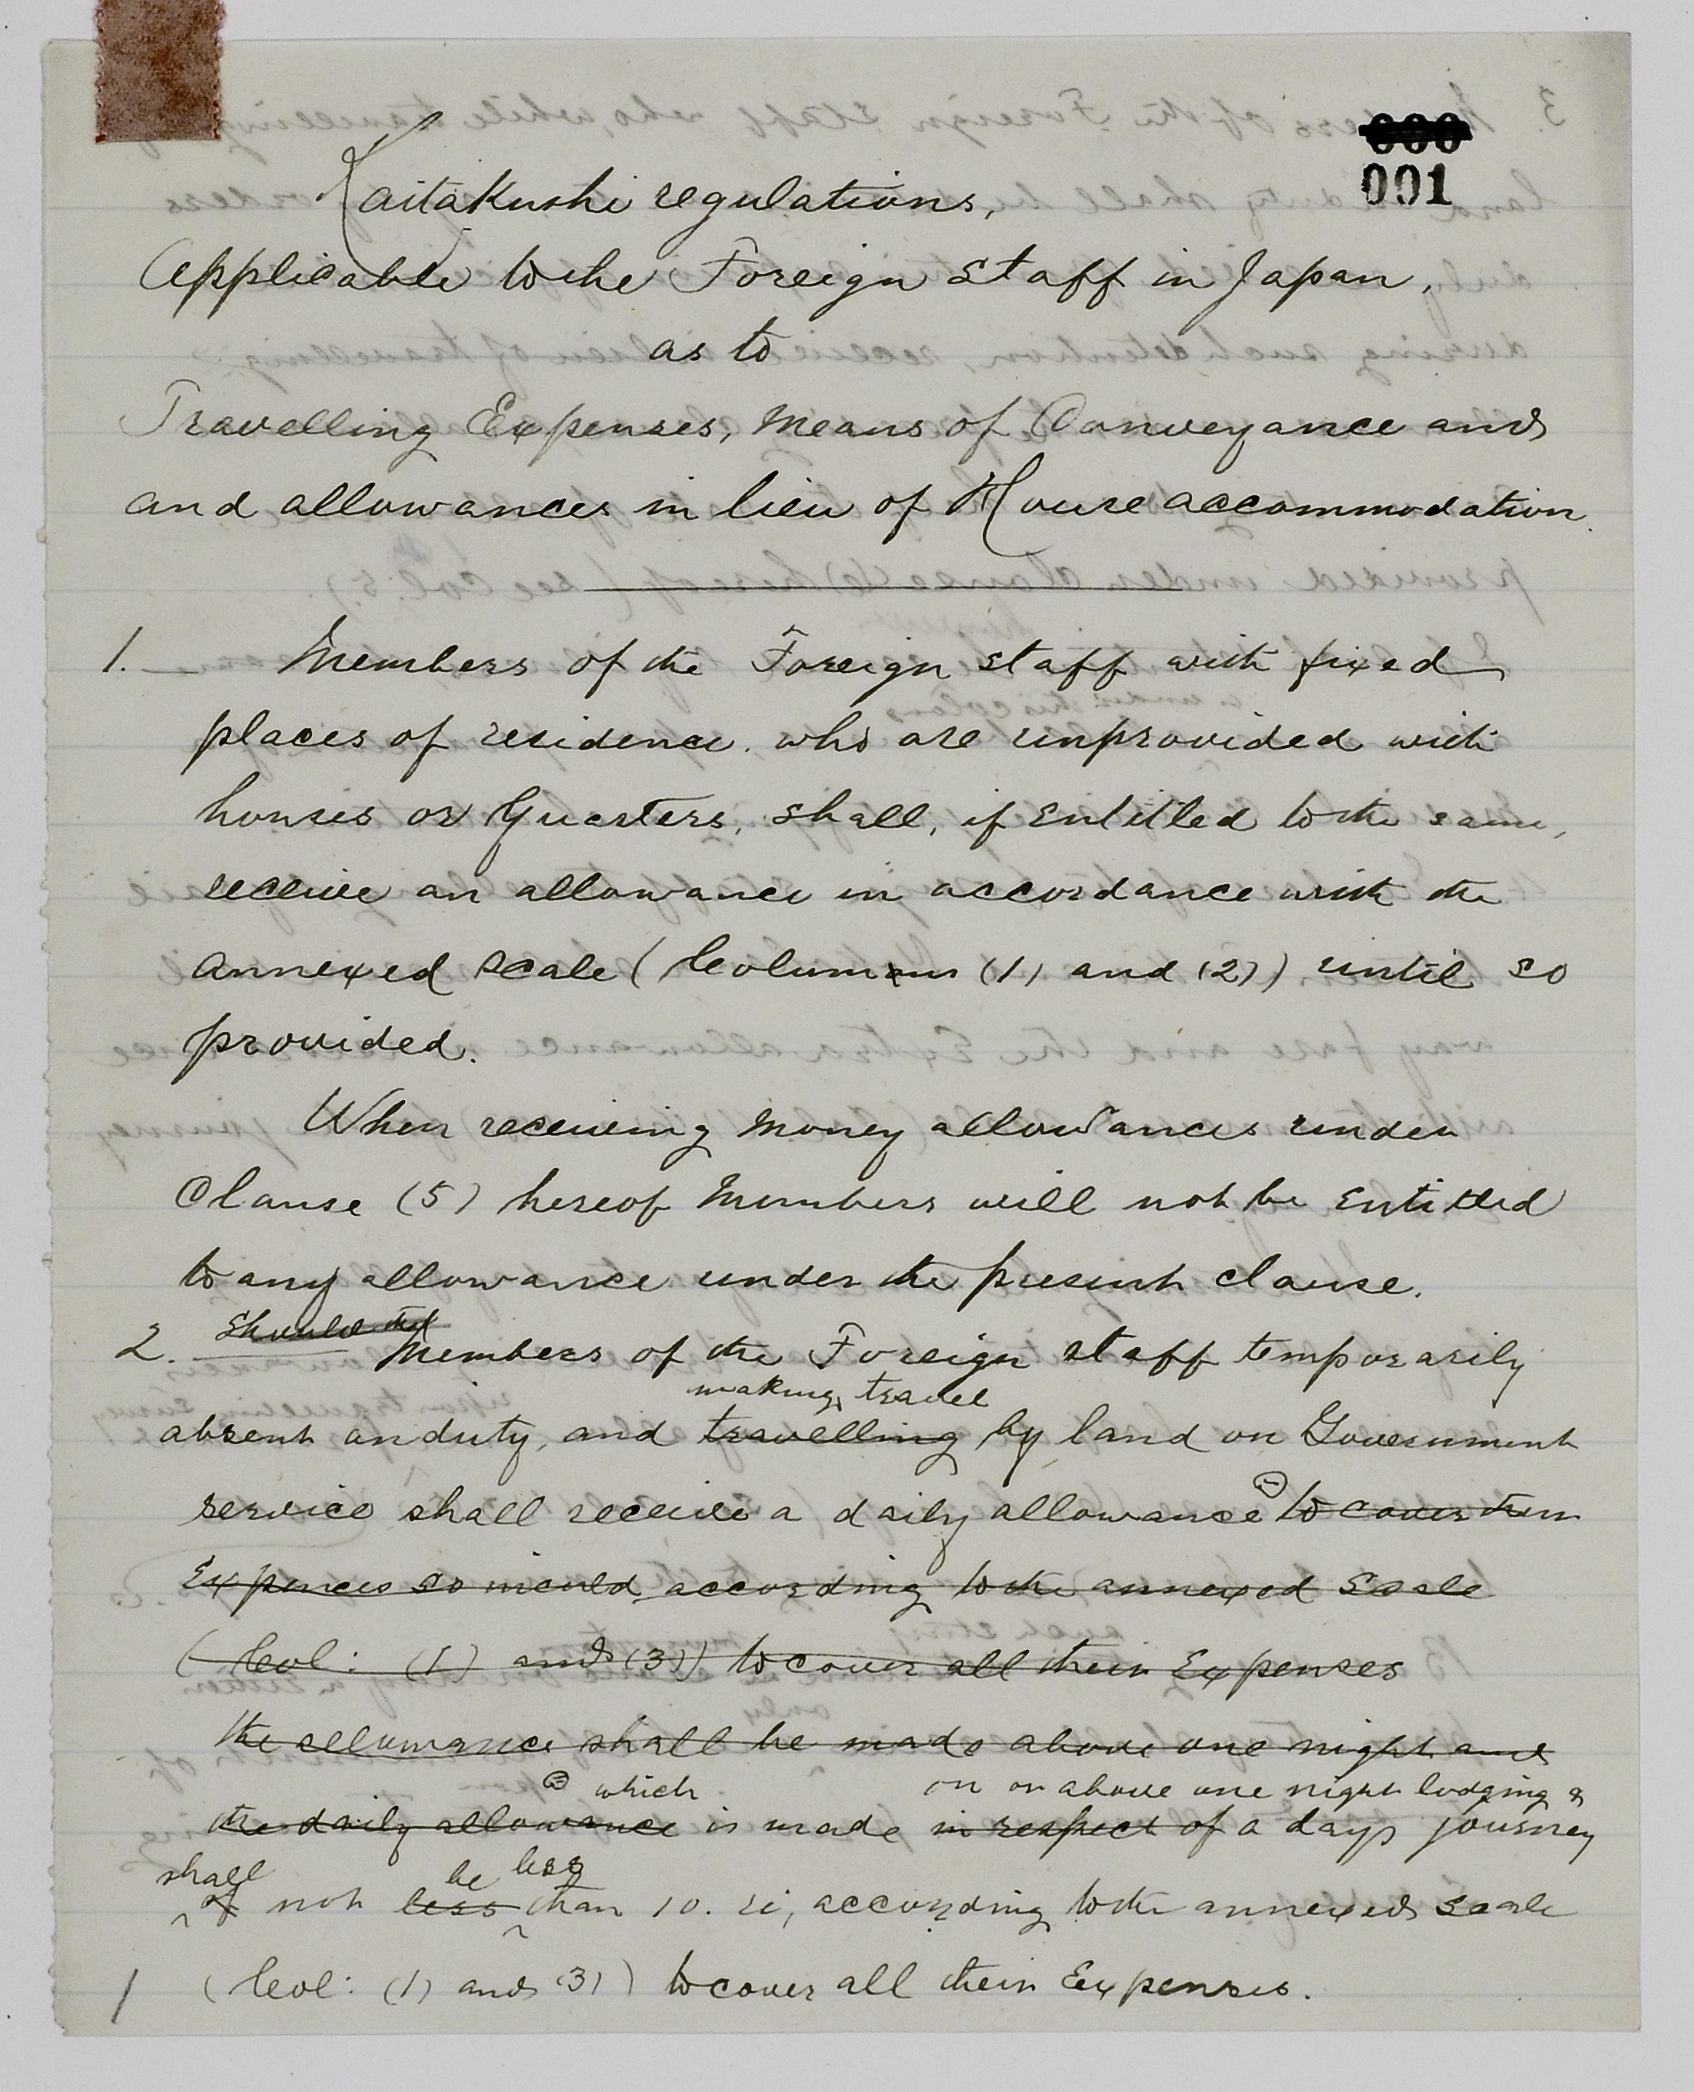 000
001
Kaitakushi regulations,
Applicable to the Foreign Staff in Japan,
as to
Travelling Expenses, Means of Conveyance and
and allowances in lieu of House accommodation.
1. Members of the Foreign staff with fixed
places of residence, who are unprovided with
houses or Quarters, shall, if Entitled to the same,
receive an allowance in accordance with the
annexed scale (Columns (1) and (2)) until so
provided.
When receiving money allowances under
Clause (5) hereof Members will not be Entitled
to any allowance under the present clause.
should the
2. Members of the Foreign staff temporarily
making travel
absent on duty, and travelling by land on Government
service shall receive a daily allowance to cover their
Expences so incurred, according to the annexed Scale
(Col: (1) and (3)) to cover all their Expenses
the allowance shall be made above one night and
which on or above one night lodging &
the daily allowance is made in respect of a days journey
shall be less
of not less than 10. ri, according to the annexed scale
1 (Col: (1) and (3)) to cover all their Expenses.